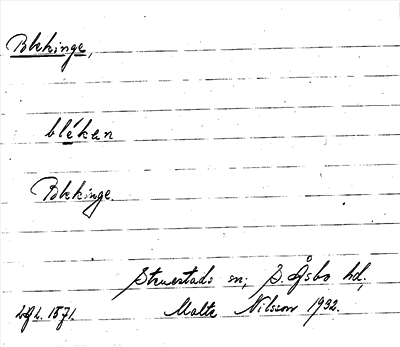 Blekinge,
bléken
Blekinge.
sn; Åsbo hd,
1871. Malte Nilsson 1932.